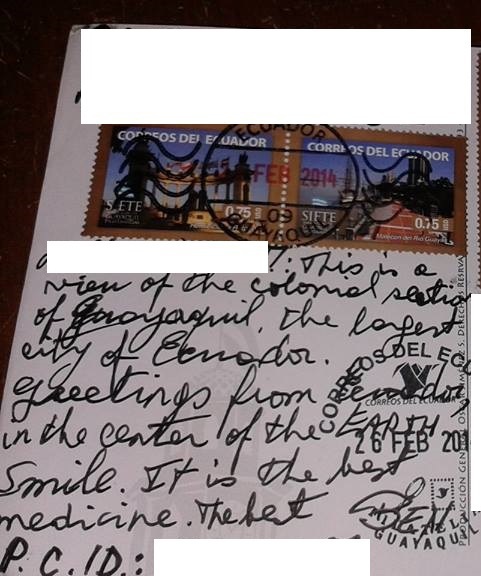 CORREOS DEL ECUADOR
SIETE
0.75 USD
CORREOS DEL ECUADOR
SIETE
0.75 USD
Malecon del Rio Guayas
ECUADOR
FEB 2014
09
GUAYAQUIL
This is a
view of the colonial section
of Guayaquil, the largest
city of Ecuador.
greetings from
in the center of the EARTH.
Smile. It is the best
medicine. The best
P.C.ID.:
CORREOS DEL EC
CORREOS DEL ECUADOR
26 FEB 201
GUAYAQUIL